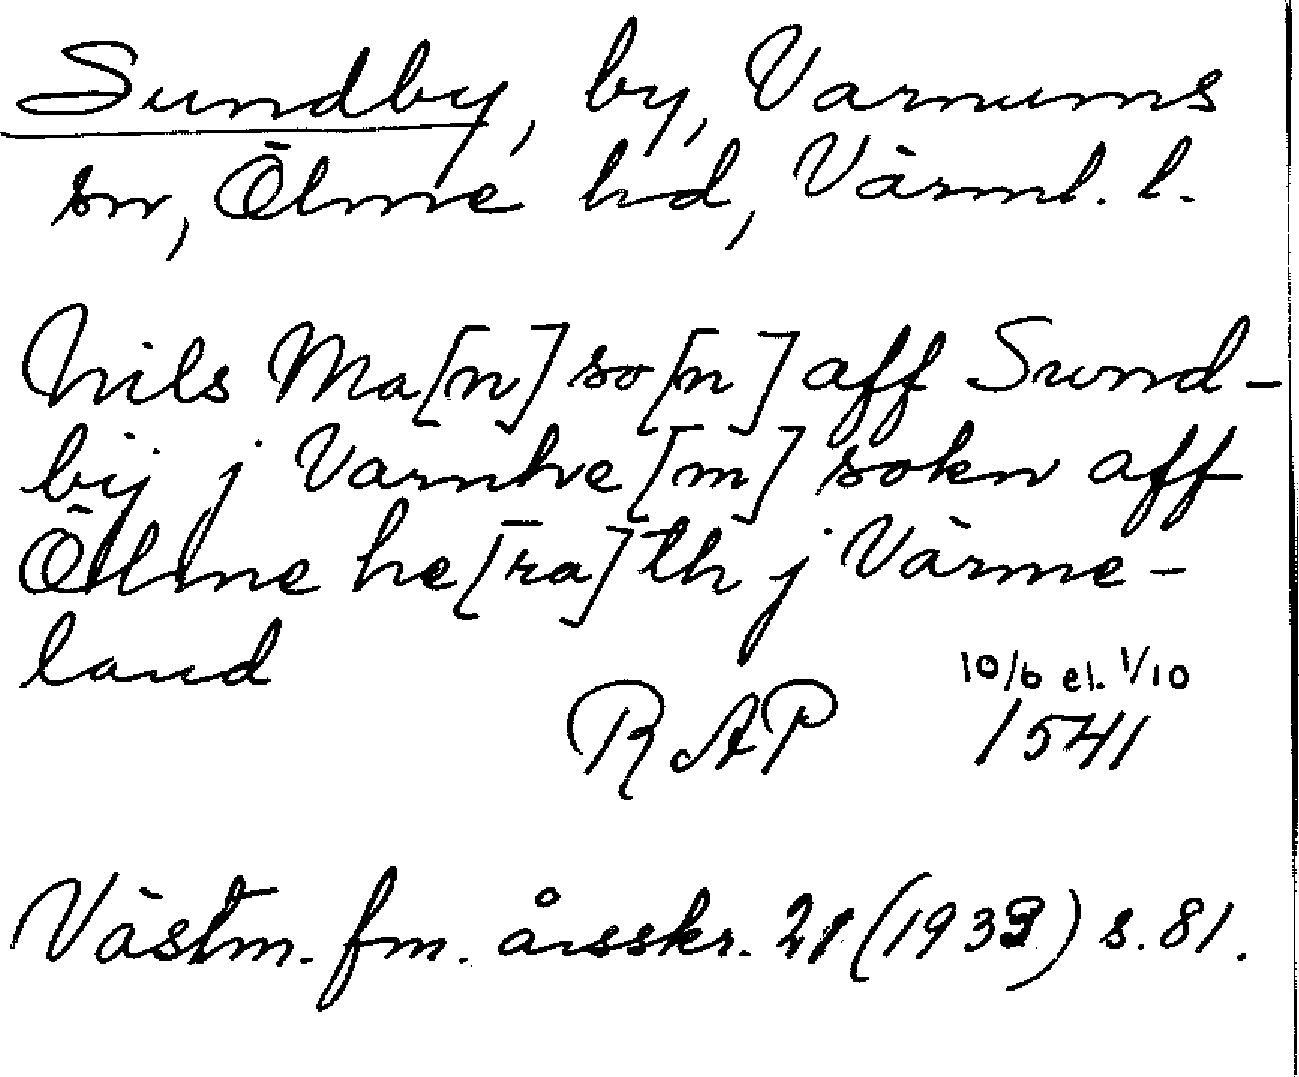 Sundby, by, Varnums
sn, Ölme hd, Värml. l.
Nils Ma[n]so[n] aff Sund-
bij j Varnhe[m] sokn aff
Ölme he[ra]th j Värme-
land
10/6 el. 1/10
RAP 1541
Västm. fm. årsskr. 21 (1933) s. 81.